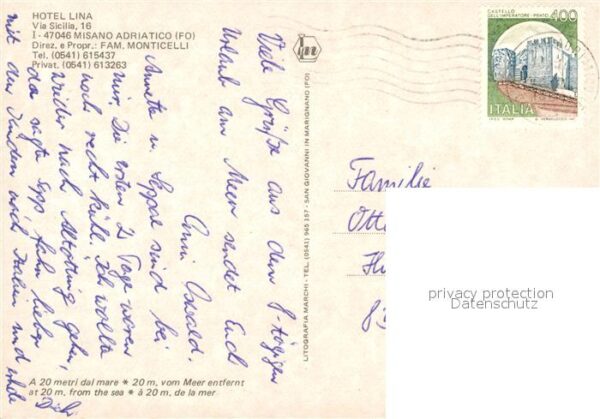 HOTEL LINA
Via Sicilia, 16
I - 47046 MISANO ADRIATICO (FO)
Direz. e Propr.: FAM. MONTICELLI
Tel. (0541) 615437
Privat. (0541) 613263
Viele Grüße aus dem 8-tägigen
Urlaub am Meer sendet Euch
Anni Oswald.
Annette u. Seppe sind bei
mir. Die ersten 2 Tage waren
noch recht kühl. Ich wollte
wieder nach Altötting gehen,
da sagte Sepp fahr lieber
mit den Kindern nach Italien und
A 20 metri dal mare * 20 m. vom Meer entfernt
at 20 m. from the sea * à 20 m. de la mer
LITOGRAFIA MARCHI - TEL. (0541) 965 357 - SAN GIOVANNI IN MARIGNANO (FO)
lm
CASTELLO
DELL'IMPERATORE - PRATO
400
ITALIA
Familie
Otto
83
privacy protection
Datenschutz